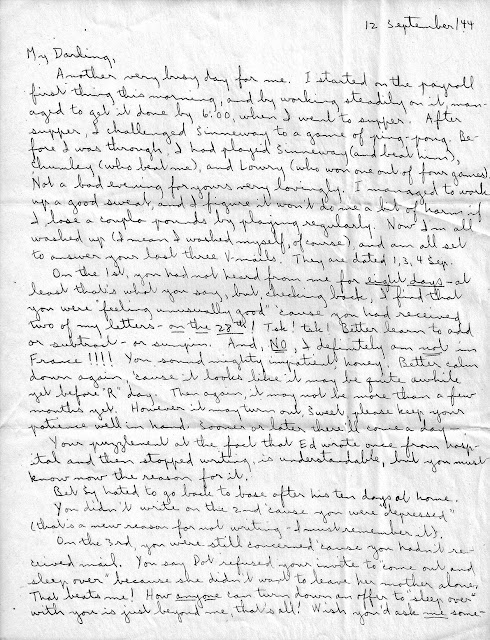 12 September/44
My Darling,
Another very busy day for me. I started on the payroll
first thing this morning, and by working steadily on it, man-
aged to get it done by 6:00, when I went to supper. After
supper, I challenged Sinneway to a game of ping-pong. Be-
fore I was through, I had played Sinneway (and beat him),
Chumley (who beat me), and Lowry (who won one out of four games).
Not a bad evening for yours very lovingly. I managed to work
up a good sweat, and I figure it won't do me a bit of harm if
I lose a coupla pounds by playing regularly. Now I'm all
washed up (I mean I washed myself, of course), and am all set
to answer your last three V-mails. They are dated 1, 3, 4 Sep.
On the 1st, you had not heard from me for eight days - at
least that's what you say, but, checking back, I find that
you were "feeling unusually good" 'cause you had received
two of my letters - on the 28th! Tsk! tsk! Better learn to add
or subtract - or sumpin. And, NO, I definitely am not in
France!!!! You sound mighty impatient, honey. Better calm
down again, 'cause it looks like it may be quite awhile
yet before "R" day. Then again, it may not be more than a few
months yet. However it may turn out, Sweet, please keep your
patience well in hand. Sooner or later there'll come a day!
Your puzzlement at the fact that Ed wrote once from hosp-
ital and then stopped writing, is understandable, but you must
know now the reason for it.
Bet Sy hated to go back to base after his ten days at home.
You didn't write on the 2nd 'cause you were "depressed"
(that's a new reason for not writing - I must remember it).
On the 3rd, you were still concerned 'cause you hadn't re-
ceived mail. You say Dot refused your invite to "come out and
sleep over" because she didn't want to leave her mother alone.
That beats me! How anyone can turn down an offer to "sleep over"
with you is just beyond me, that's all! Wish you'd ask me some-